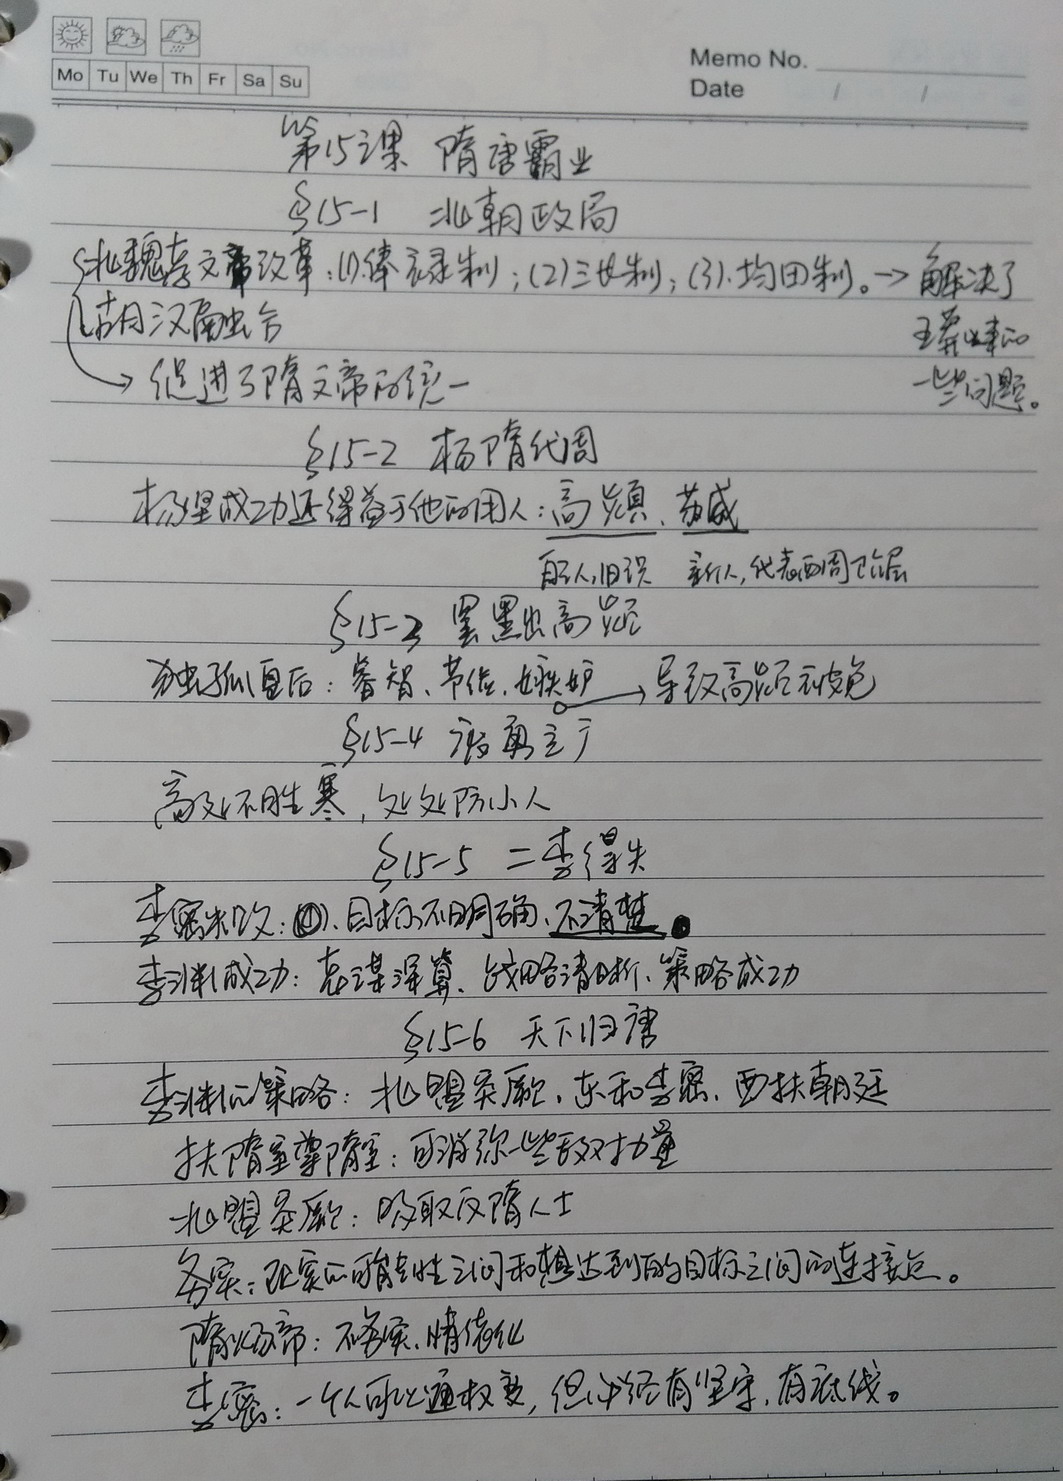 Memo No.
Mo Tu We Th Fr Sa Su
Date / /
第15课 隋唐霸业
§15-1 北朝政局
北魏孝文帝改革：(1)俸禄制；(2)三长制；(3).均田制。→ 解决了
王莽以来的
一些问题。
胡汉融合
→ 促进了隋文帝的统一
§15-2 杨隋代周
杨坚成功还得益于他的用人：高颎、苏威
自己人,旧识 新人,代表西周下层
§15-3 罢黜高颎
独孤皇后：睿智、节俭、嫉妒 → 导致高颎被免
§15-4 废勇立广
高处不胜寒，处处防小人
§15-5 二李得失
李密失败：(1).目标不明确、不清楚
李渊成功：老谋深算、战略清晰、策略成功
§15-6 天下归唐
李渊的策略：北盟突厥、东和李密、西扶朝廷
扶隋室尊隋室：可消弥一些敌对力量
北盟突厥：吸取反隋人士
务实：现实的可能性之间和想达到的目标之间的连接点。
隋炀帝：不务实、情绪化
李密：一个人可以通权变，但必须有坚守，有底线。